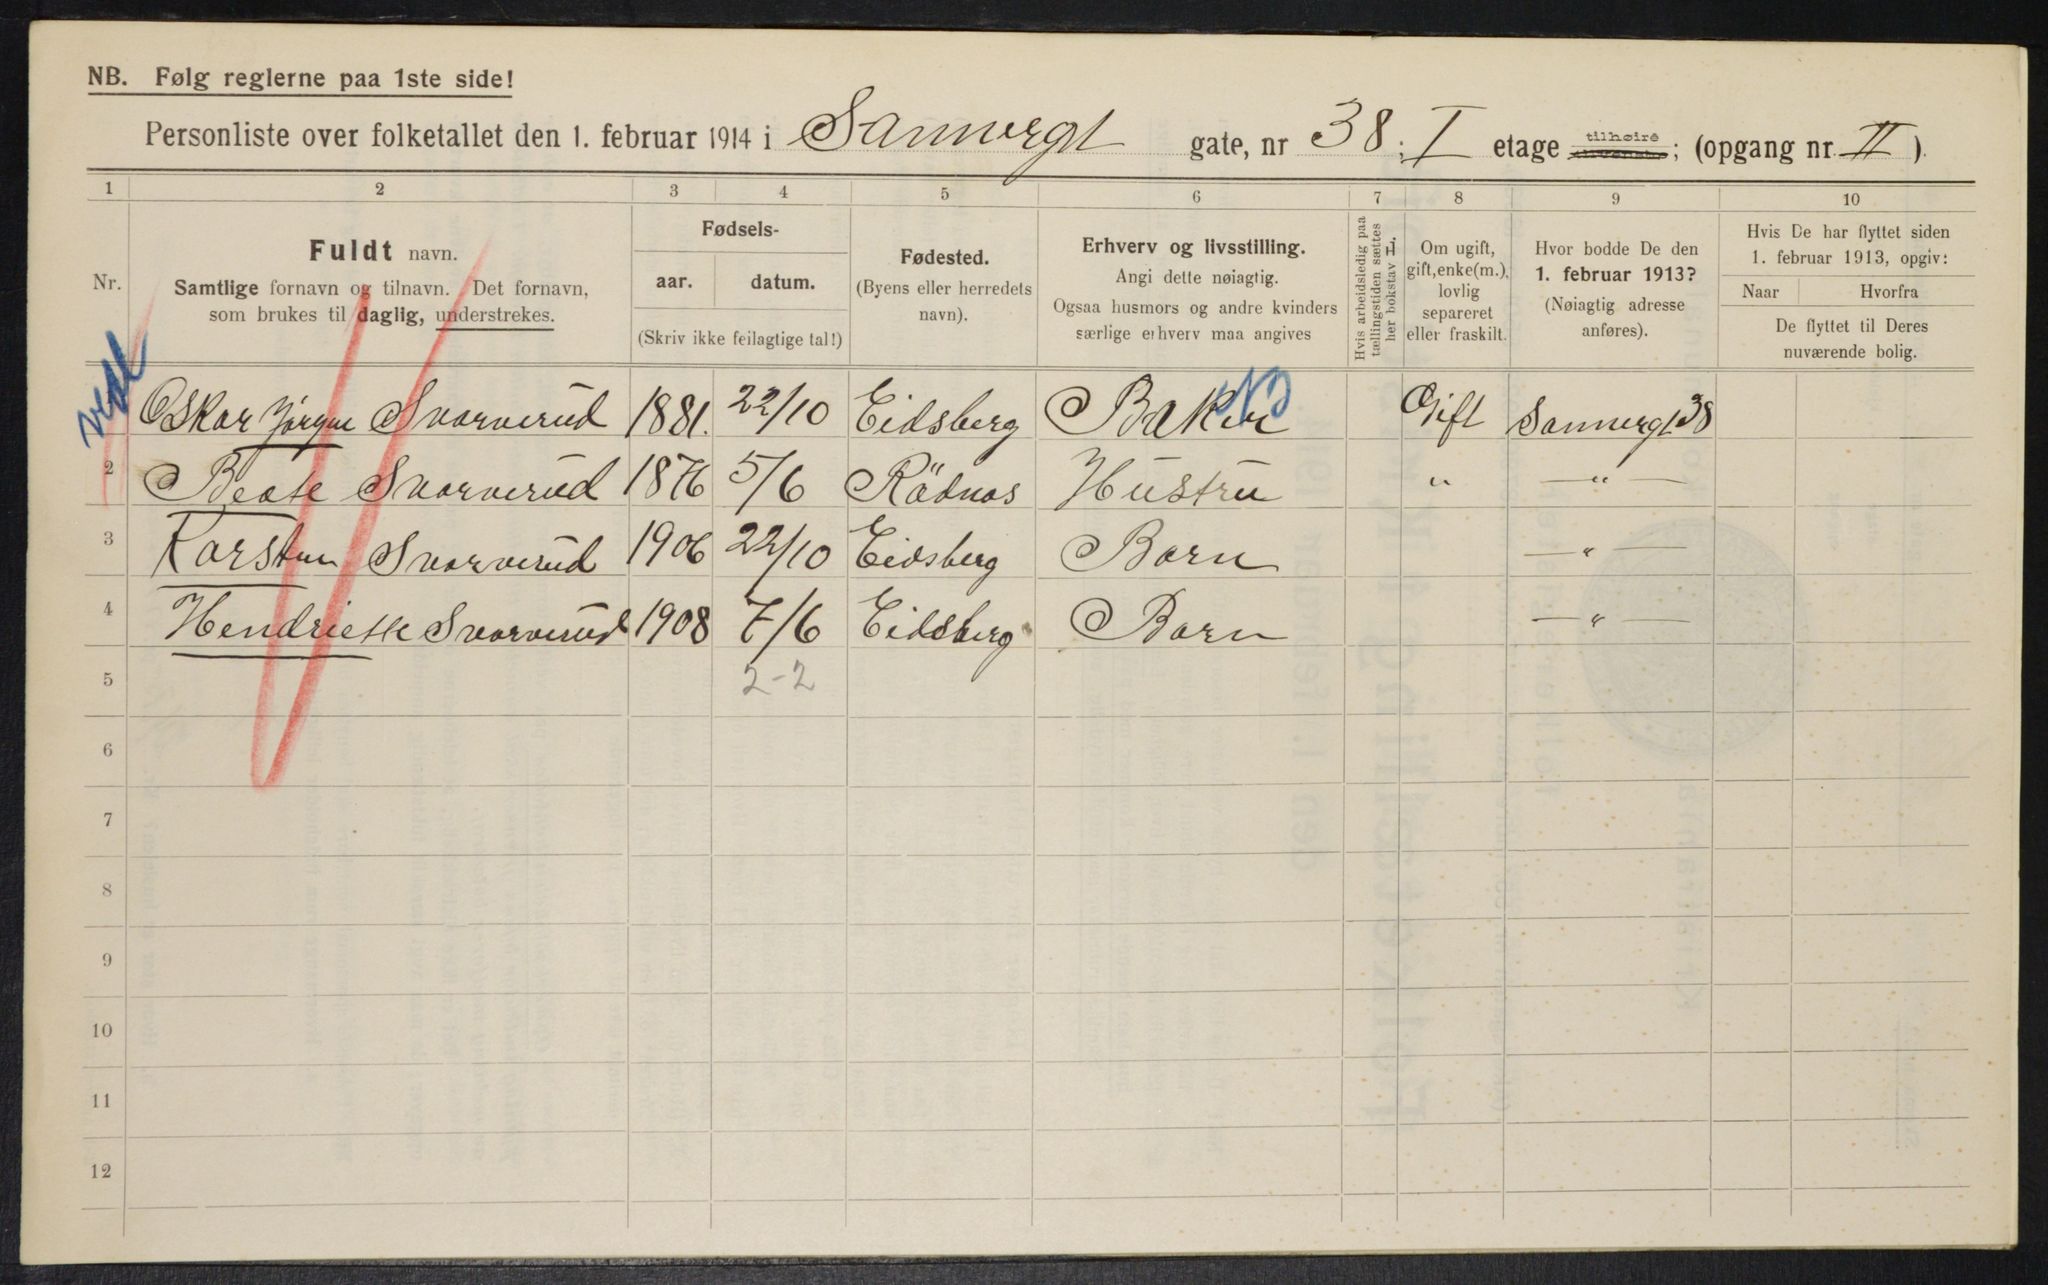 NB. Følg reglerne paa 1ste side!
Personliste over folketallet den 1. februar 1914 i Sannergt gate, nr 38; I etage tilhøire; (opgang nr. II).
1 2 3 4 5 6 7 8 9 10
Nr.
Fuldt navn.
Samtlige fornavn og tilnavn. Det fornavn,
som brukes til daglig, understrekes.
Fødsels-
aar. datum.
(Skriv ikke feilagtige tal!)
Fødested.
(Byens eller herredets
navn).
Erhverv og livsstilling.
Angi dette nøiagtig.
Ogsaa husmors og andre kvinders
særlige erhverv maa angives
Hvis arbeidsledig paa
tællingstiden sættes
her bokstav L.
Om ugift,
gift, enke(m.),
lovlig
separeret
eller fraskilt.
Hvor bodde De den
1. februar 1913?
(Nøiagtig adresse
anføres).
Hvis De har flyttet siden
1. februar 1913, opgiv:
Naar Hvorfra
De flyttet til Deres
nuværende bolig.
Oskar Jørgen Svarverud 1881. 22/10 Eidsberg Baker Gift Sannergt 38
2 Beate Svarverud 1876 5/6 Rädnæs Hustru " —"—
3 Karsten Svarverud 1906 22/10 Eidsberg Barn —"—
4 Hendriette Svarverud 1908 7/6 Eidsberg Barn —"—
5 2-2
6
7
8
9
10
11
12